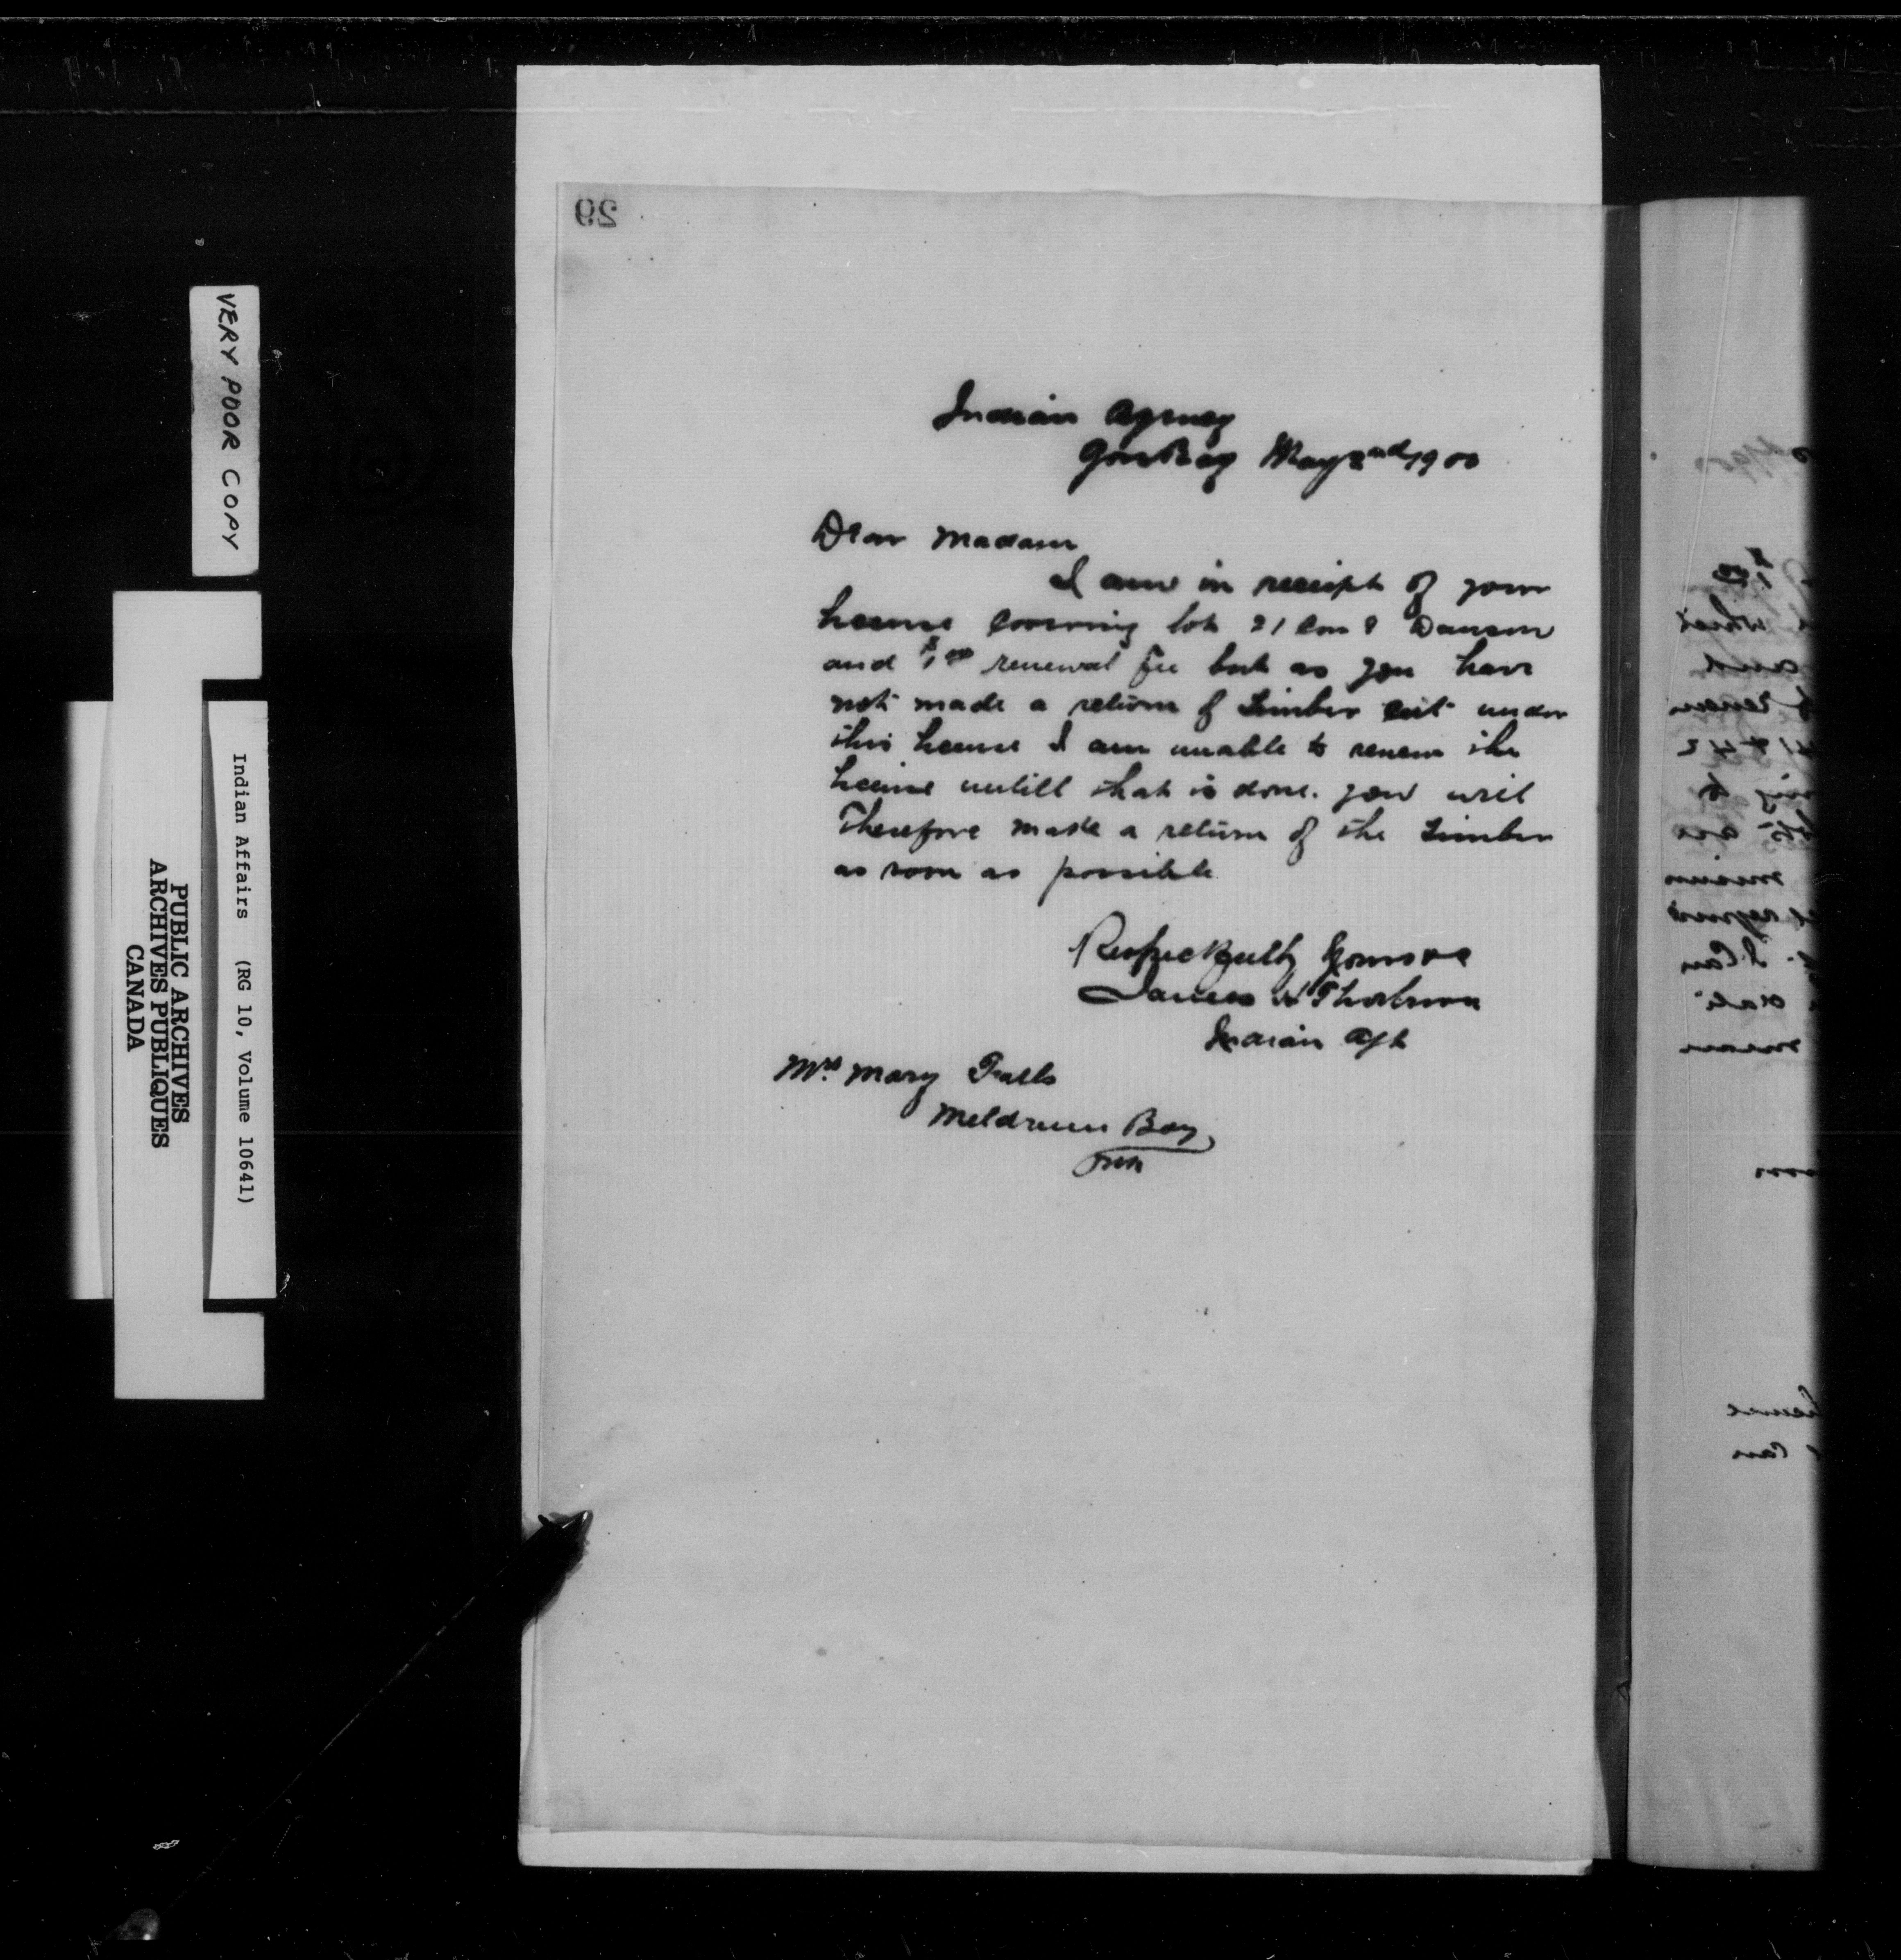 29
Indian Agency
Gore Bay May 2nd 1900
Dear Madam
I am in receipt of your
license covering lot 21 Con 8 Dawson
and $1.00 renewal fee but as you have
not made a return of Timber cut under
this license I am unable to renew the
license untill that is done. you will
Therefore make a return of the Timber
as soon as possible
Respectfully Yours
James H Thorburn
Indian Agt
Mrs Mary Falls
Meldrum Bay
Ont
VERY POOR COPY
Indian Affairs (RG 10, Volume 10641)
PUBLIC ARCHIVES
ARCHIVES PUBLIQUES
CANADA